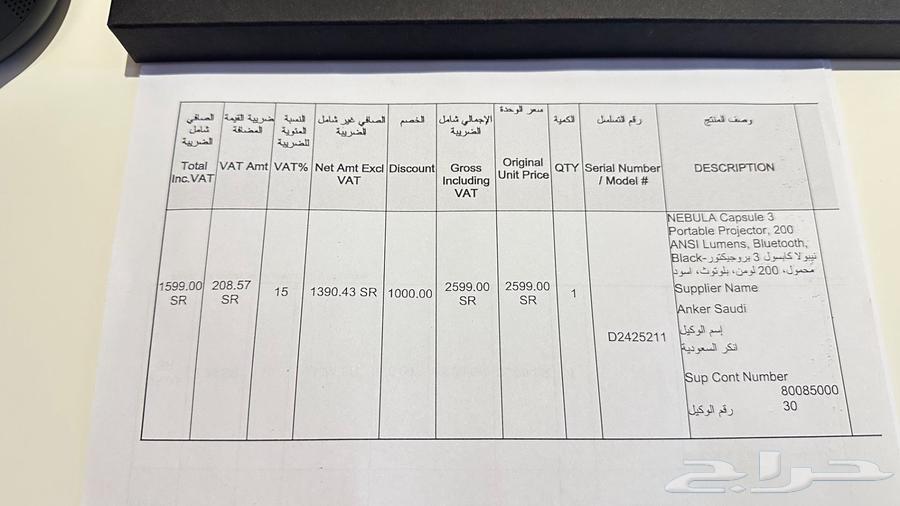 الصافي
شامل
الضريبة
ضريبة القيمة
المضافة
النسبة
المئوية
للضريبة
الصافي غير شامل
الضريبة
الخصم
الإجمالي شامل
الضريبة
سعر الوحدة
الكمية
رقم التسلسل
وصف المنتج
Total
Inc.VAT
VAT Amt
VAT%
Net Amt Excl
VAT
Discount
Gross
Including
VAT
Original
Unit Price
QTY
Serial Number
/ Model #
DESCRIPTION
1599.00
SR
208.57
SR
15
1390.43 SR
1000.00
2599.00
SR
2599.00
SR
1
D2425211
NEBULA Capsule 3
Portable Projector, 200
ANSI Lumens, Bluetooth,
Black-نيبولا كابسول 3 بروجيكتور
محمول، 200 لومن، بلوتوث، اسود
Supplier Name
Anker Saudi
إسم الوكيل
انكر السعودية
Sup Cont Number
80085000
30
رقم الوكيل
حراج